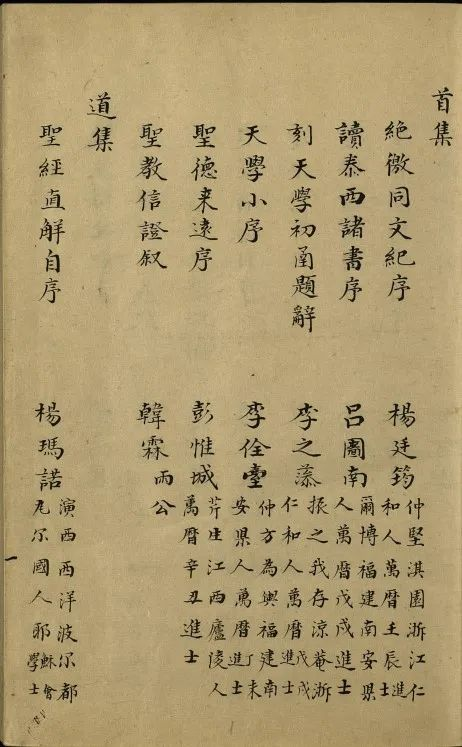 首集
絶徼同文紀序 楊廷筠 仲堅淇園浙江仁
和人萬曆壬辰進士
讀泰西諸書序 呂圖南 爾博福建南安県
人萬曆戊戌進士
刻天學初函題辭 李之藻 振之我存涼菴浙
仁和人萬曆戊戌進士
天學小序 李佺臺 仲方為輿福建南
安県人萬曆丁未進士
聖德来遠序 彭惟城 芹生江西廬陵人
萬曆辛丑進士
聖教信證叙 韓霖 雨公
道集
聖經直解自序 楊瑪諾 演西西洋波尔都
尼尔國人耶穌會學士